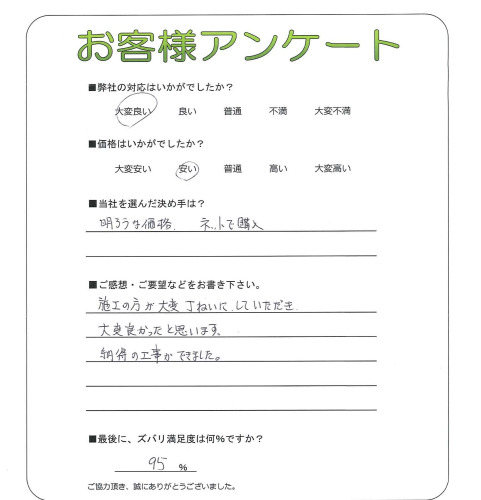 お客様アンケート
■弊社の対応はいかがでしたか？
大変良い 良い 普通 不満 大変不満
■価格はいかがでしたか？
大変安い 安い 普通 高い 大変高い
■当社を選んだ決め手は？
明ろうな価格. ネットで購入
■ご感想・ご要望などをお書き下さい。
施工の方が大変 丁ねいに していただき.
大変良かったと思います.
納得の工事ができました。
■最後に、ズバリ満足度は何％ですか？
95 %
ご協力頂き、誠にありがとうございました。